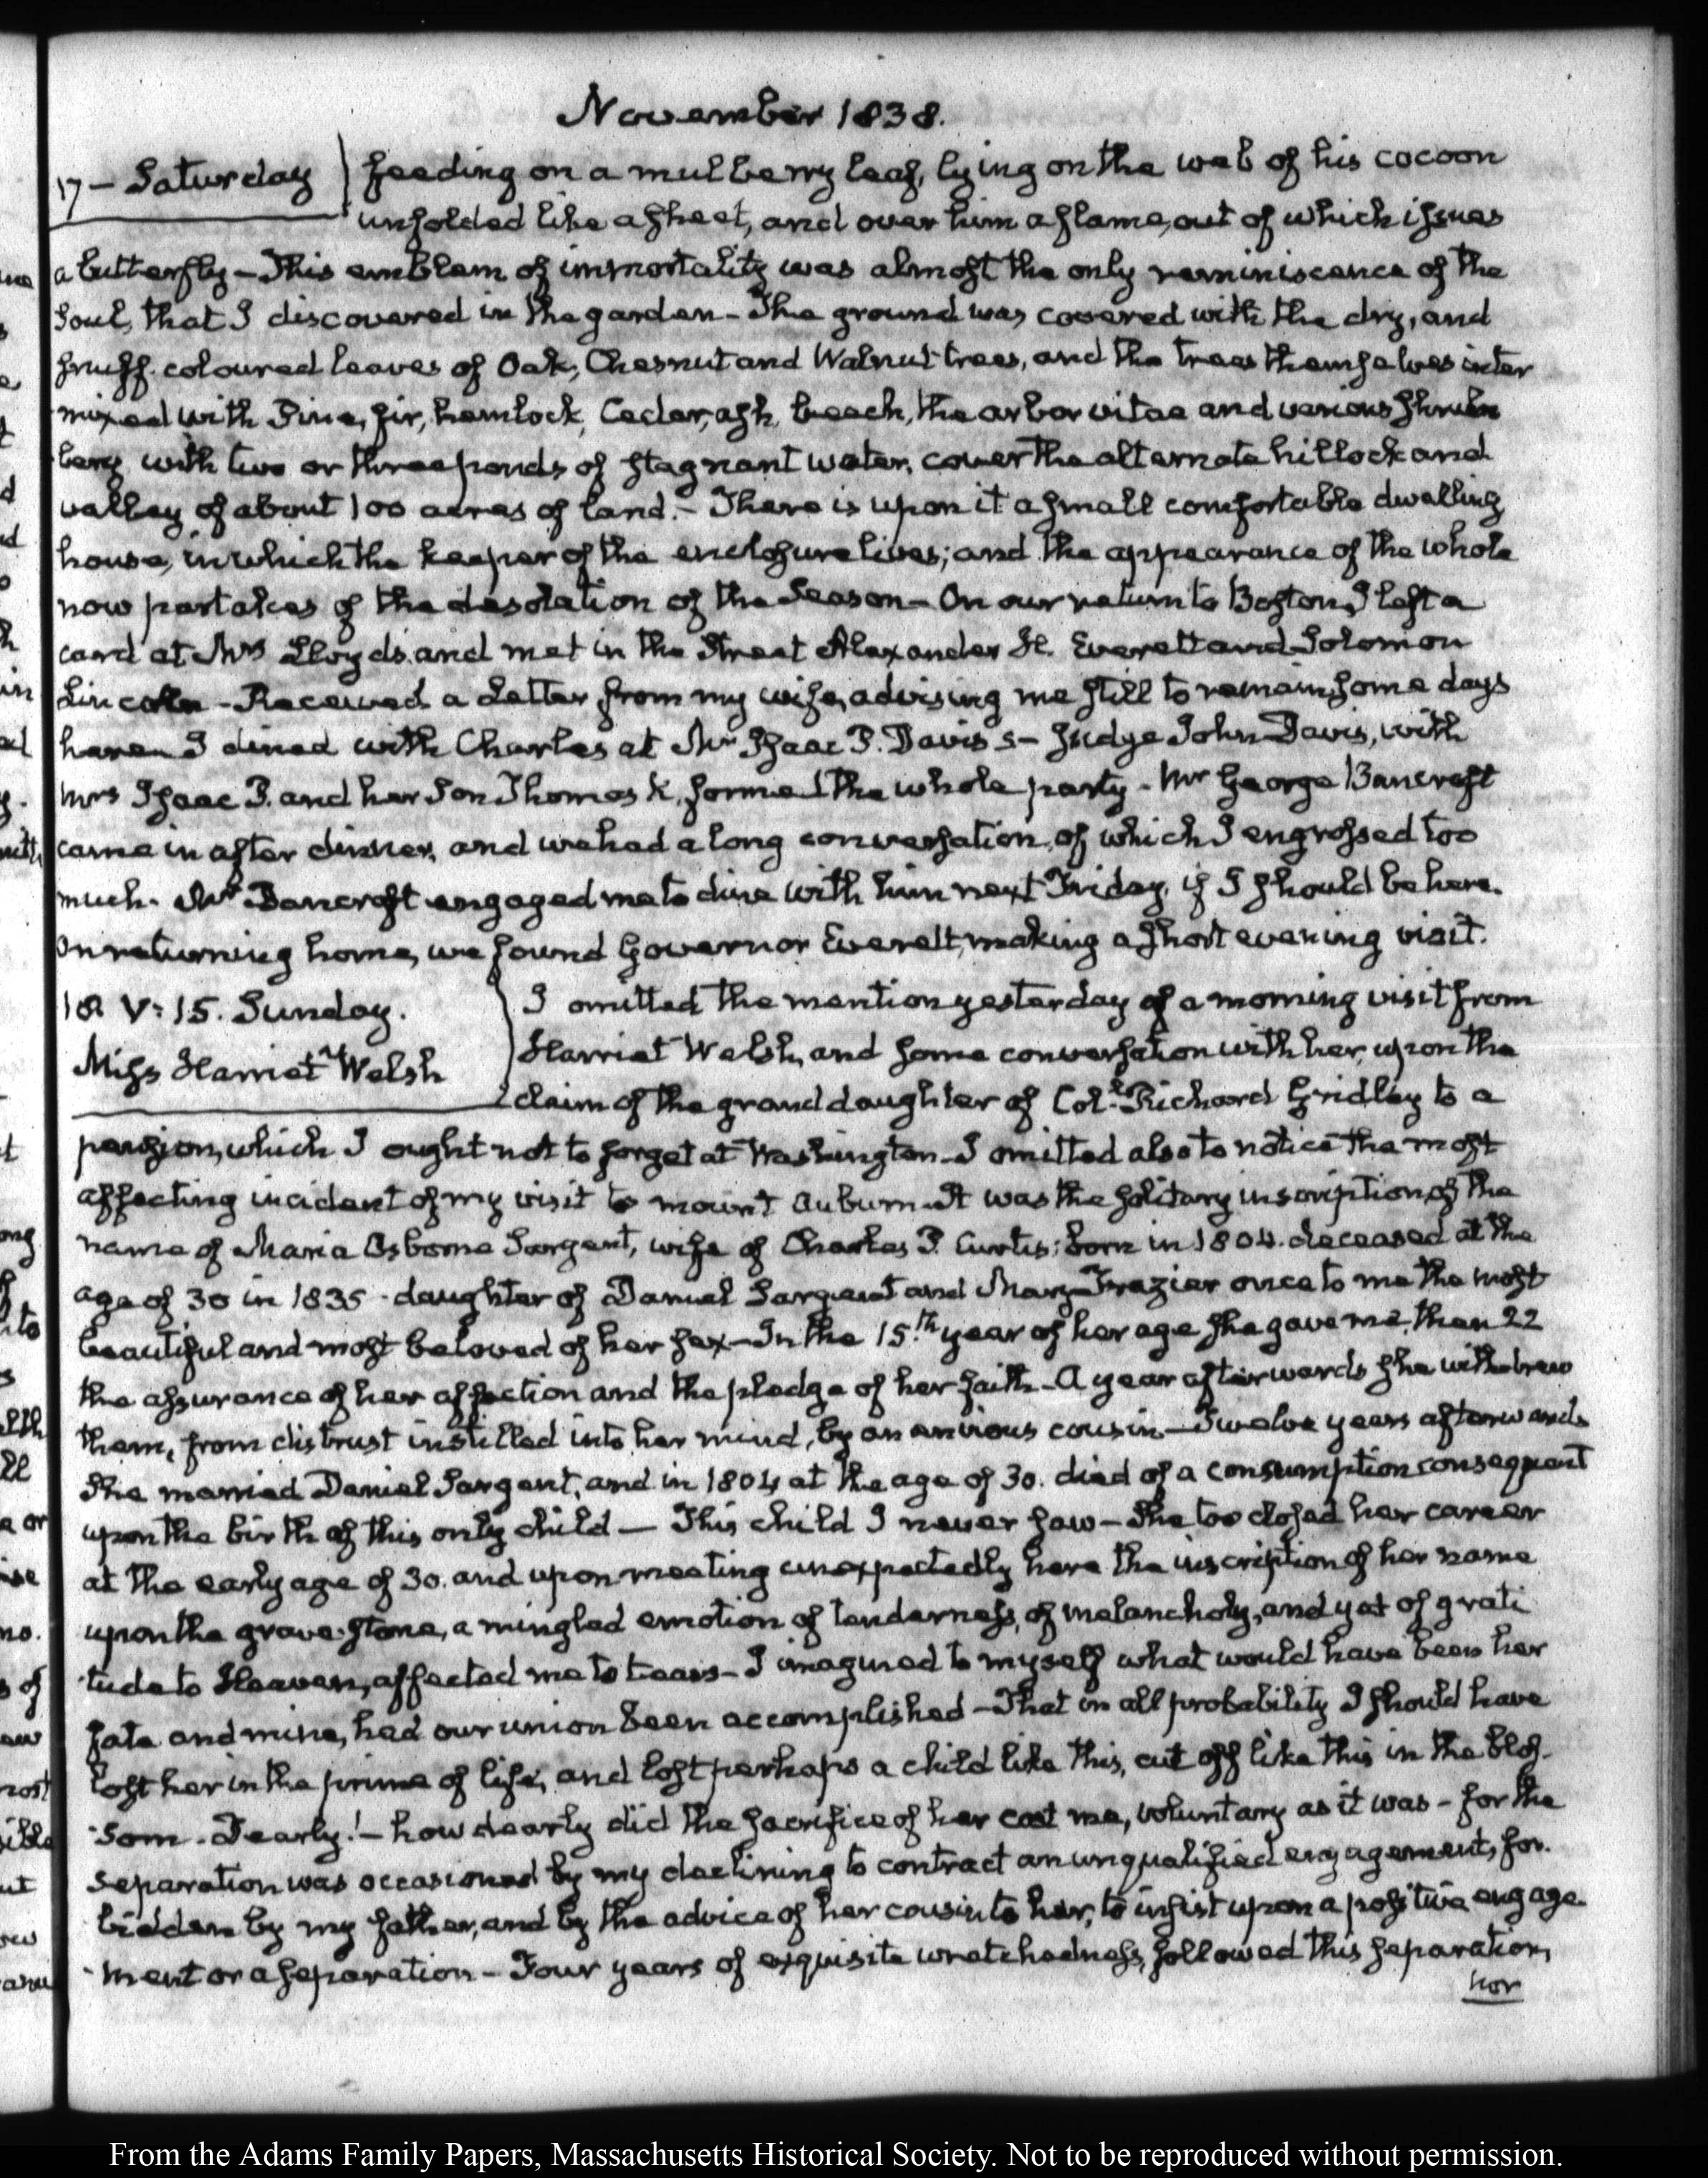 November 1838.
17 — Saturday
feeding on a mulberry leaf, lying on the web of his cocoon
unfolded like a sheet, and over him a flame, out of which issues
a butterfly — This emblem of immortality was almost the only reminiscence of the
Soul, that I discovered in the garden — The ground was covered with the dry, and
snuff-coloured leaves of Oak, Chesnut and Walnut trees, and the trees themselves inter
mixed with Pine, fir, hemlock, Cedar, ash, beech, the arbor vitae and various shrub
bery with two or three ponds of stagnant water, cover the alternate hillock and
valley of about 100 acres of land. — There is upon it a small comfortable dwelling
house, in which the keeper of the enclosure lives; and the appearance of the whole
now partakes of the desolation of the Season — On our return to Boston, I left a
card at Mrs Lloyd's and met in the Street Alexander H. Everett and Solomon
Lincoln — Received a Letter from my wife, advising me still to remain some days
here — I dined with Charles at Mr Isaac P. Davis's — Judge John Davis, with
Mrs Isaac P. and her Son Thomas K. formed the whole party — Mr George Bancroft
came in after dinner, and we had a long conversation, of which I engrossed too
much. Mr Bancroft engaged me to dine with him next Friday, if I should be here.
On returning home, we found Governor Everett, making a short evening visit.
18 V: 15. Sunday.
Miss Harriet Welsh
I omitted the mention yesterday of a morning visit from
Harriet Welsh, and some conversation with her, upon the
claim of the grand daughter of Coll. Richard Gridley to a
pension, which I ought not to forget at Washington — I omitted also to notice the most
affecting incident of my visit to mount Auburn — It was the solitary inscription of the
name of Maria Osborne Sargent, wife of Charles P. Curtis; born in 1804. deceased at the
age of 30 in 1835 — daughter of Daniel Sargent and Mary Frazier once to me the most
beautiful and most beloved of her sex — In the 15th year of her age she gave me, then 22
the assurance of her affection and the pledge of her faith — A year afterwards she withdrew
them, from distrust instilled into her mind, by an envious cousin — Twelve years afterwards
she married Daniel Sargent, and in 1804 at the age of 30. died of a consumption consequent
upon the birth of this only child — This child I never saw — She too closed her career
at the early age of 30. and upon meeting unexpectedly here the inscription of her name
upon the grave-stone, a mingled emotion of tenderness, of melancholy, and yet of grati
tude to Heaven, affected me to tears — I imagined to myself what would have been her
fate and mine, had our union been accomplished — That in all probability I should have
lost her in the prime of life, and lost perhaps a child like this, cut off like this in the blos-
som — Dearly! — how dearly did the sacrifice of her cost me, voluntary as it was — for the
separation was occasioned by my declining to contract an unqualified engagement, for-
bidden by my father, and by the advice of her cousin to her, to insist upon a positive engage
ment or a separation — Four years of exquisite wretchedness, followed this separation,
nor
From the Adams Family Papers, Massachusetts Historical Society. Not to be reproduced without permission.